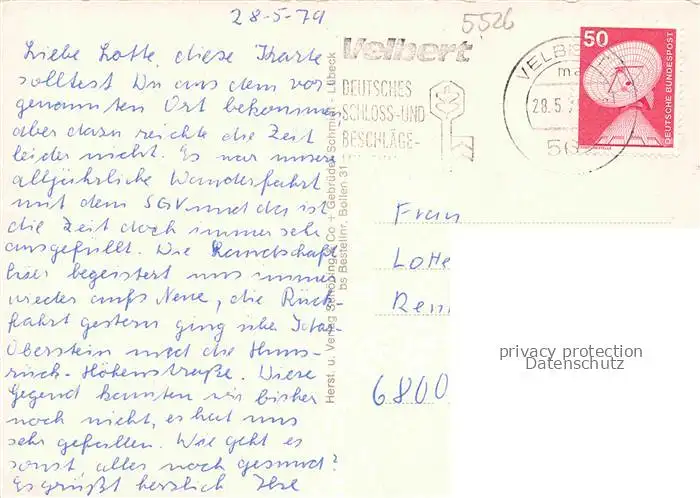 28-5-79
5526
Liebe Lotte, diese Karte
solltest Du aus dem vor-
genannten Ort bekommen,
aber dazu reichte die Zeit
leider nicht. Es war unsere
alljährliche Wanderfahrt
mit dem SGV und da ist
die Zeit doch immer sehr
ausgefüllt. Die Landschaft
hier begeistert uns immer
wieder aufs Neue, die Rück-
fahrt gestern ging über Idar-
Oberstein und die Huns-
rück-Höhenstraße. Diese
Gegend kannten wir bisher
noch nicht, es hat uns
sehr gefallen. Wie geht es
sonst, alles noch gesund?
Es grüßt herzlich Ihre
Herst. u. Verlag Schöning & Co + Gebrüder Schmidt - Lübeck
bs Bestellnr. Bollen 31
Velbert
DEUTSCHES
SCHLOSS-UND
BESCHLÄGE-
VELBERT
28.5.
56
50
DEUTSCHE BUNDESPOST
Frau
Lotte
6800
privacy protection
Datenschutz